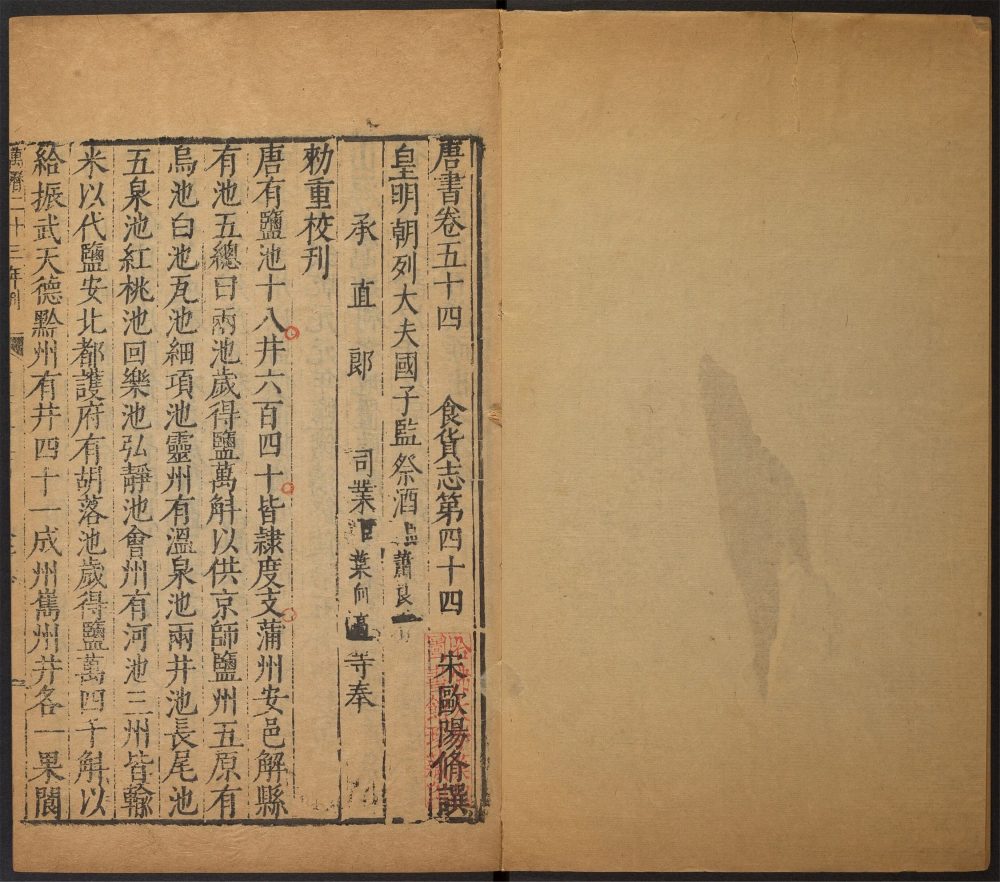 唐書卷五十四 食貨志第四十四 宋歐陽脩譔
皇明朝列大夫國子監祭酒 蕭良
承直郎 司業 葉向高等奉
勑重校刊
唐有鹽池十八井六百四十皆隷度支蒲州安邑解縣
有池五總曰兩池歲得鹽萬斛以供京師鹽州五原有
烏池白池瓦池細項池靈州有溫泉池兩井池長尾池
五泉池紅桃池回樂池弘靜池會州有河池三州皆輸
米以代鹽安北都護府有胡落池歲得鹽萬四千斛以
給振武天德黔州有井四十一成州嶲州井各一果閬
萬曆二十三年刊